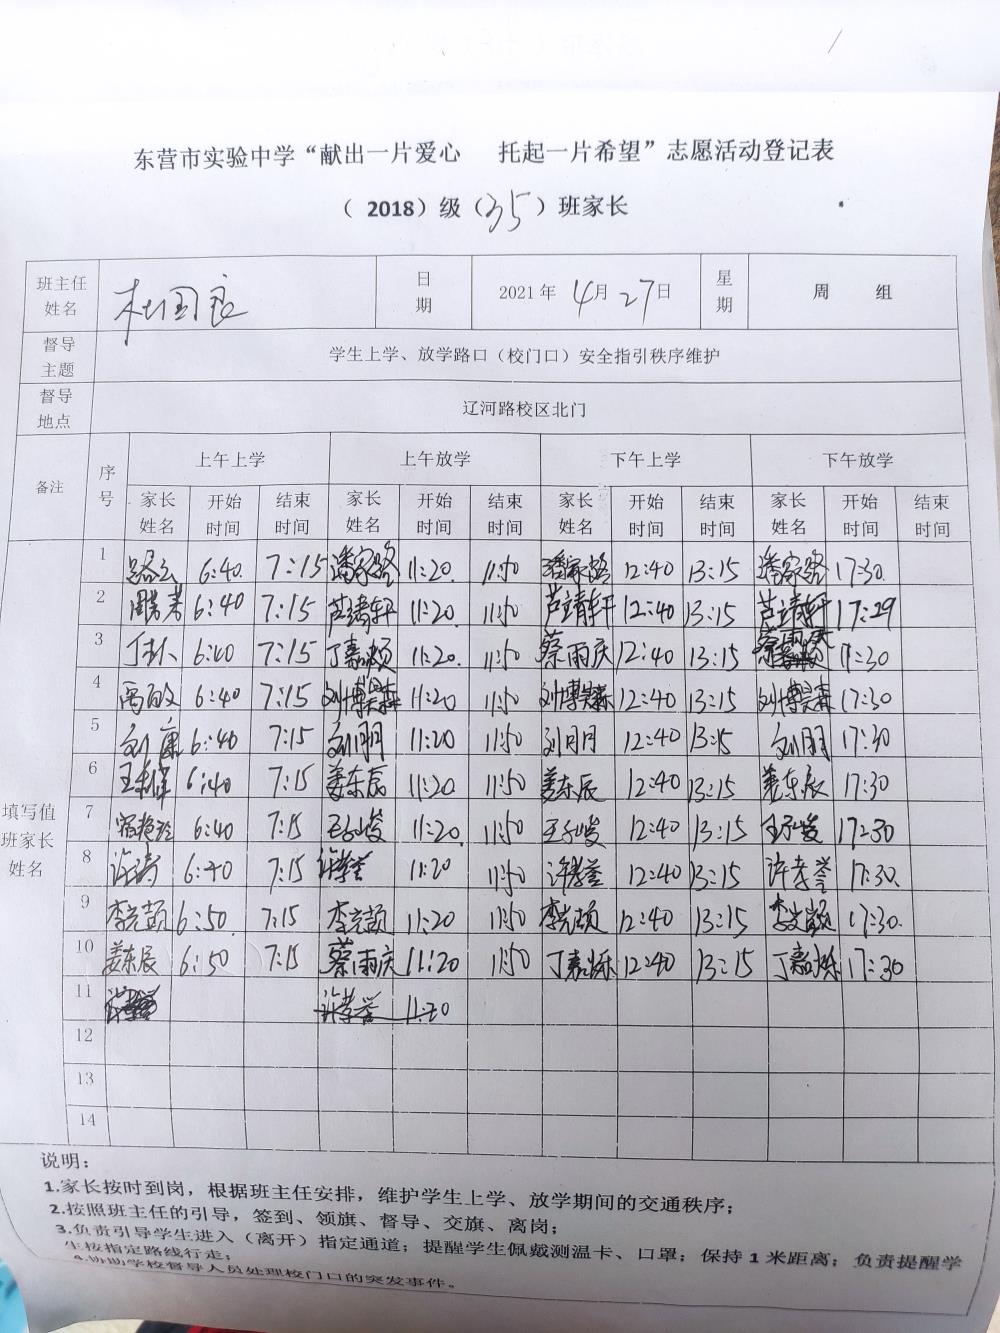 东营市实验中学“献出一片爱心 托起一片希望”志愿活动登记表
（ 2018）级（35）班家长
班主任姓名 杜国良 日期 2021年 4月 27日 星期 周 组
督导主题 学生上学、放学路口（校门口）安全指引秩序维护
督导地点 辽河路校区北门
备注 序号 上午上学 上午放学 下午上学 下午放学
家长姓名 开始时间 结束时间 家长姓名 开始时间 结束时间 家长姓名 开始时间 结束时间 家长姓名 开始时间 结束时间
填写值班家长姓名
1 6:40 7:15 潘家路 11:20 11:50 潘家路 12:40 13:15 潘家路 17:30
2 6:40 7:15 芦靖轩 11:20 11:50 芦靖轩 12:40 13:15 芦靖轩 17:29
3 6:40 7:15 丁嘉烁 11:20 11:50 蔡雨庆 12:40 13:15 蔡雨庆 17:30
4 6:40 7:15 刘博昊森 11:20 11:50 刘博昊森 12:40 13:15 刘博昊森 17:30
5 刘康 6:40 7:15 刘明 11:20 11:50 刘明 12:40 13:15 刘明 17:30
6 6:40 7:15 姜东辰 11:20 11:50 姜东辰 12:40 13:15 姜东辰 17:30
7 6:40 7:15 王子峻 11:20 11:50 王子峻 12:40 13:15 王子峻 17:30
8 许涛 6:40 7:15 许孝誉 11:20 11:50 许孝誉 12:40 13:15 许孝誉 17:30
9 李竞颉 6:50 7:15 李竞颉 11:20 11:50 李竞颉 12:40 13:15 17:30
10 姜东辰 6:50 7:15 蔡雨庆 11:20 11:50 丁嘉烁 12:40 13:15 丁嘉烁 17:30
11 许孝誉 11:20
12
13
14
说明：
1.家长按时到岗，根据班主任安排，维护学生上学、放学期间的交通秩序；
2.按照班主任的引导，签到、领旗、督导、交旗、离岗；
3.负责引导学生进入（离开）指定通道；提醒学生佩戴测温卡、口罩；保持1米距离；负责提醒学
生按指定路线行走；
4.协助学校督导人员处理校门口的突发事件。